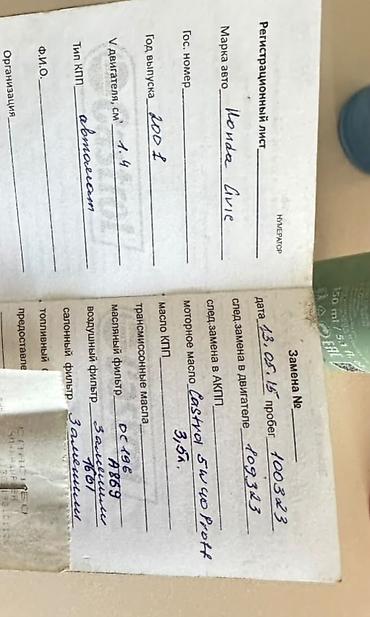 Регистрационный лист
НУМЕРАТОР
Марка авто Honda Civic
Гос. номер
Год выпуска 2002
V двигателя, см³ 1.4
Тип КПП автомат
Ф.И.О.
Организация
Замена №
дата 13.05.15 пробег 100323
след.замена в двигателе 109323
след.замена в АКПП
моторное масло Castrol 5W40 Proff
3,5л.
масло КПП
трансмиссонные масла
масляный фильтр OC196
A869
воздушный фильтр Заменили
1661
салонный фильтр Заменили
топливный
предоставле
150 ml / 5.1
EAC